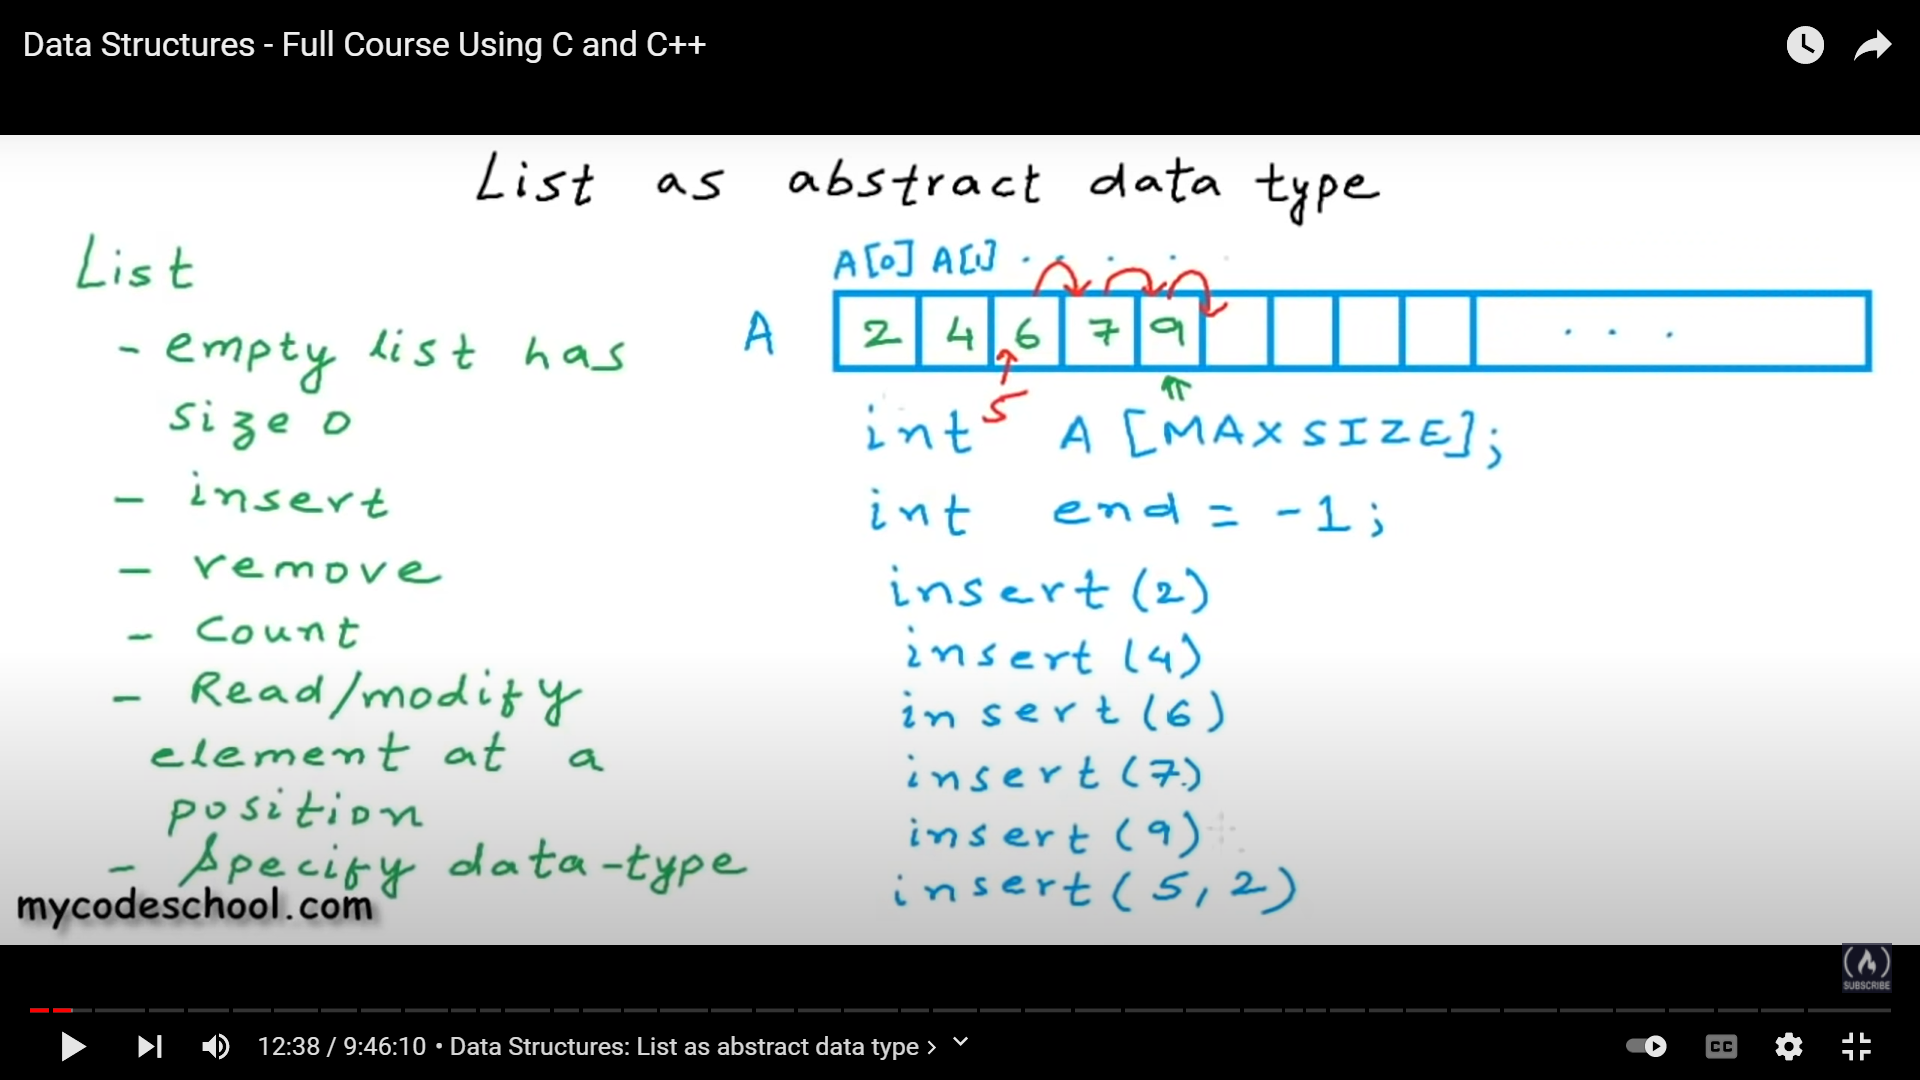 Data Structures - Full Course Using C and C++
List as abstract data type
List
- empty list has
size 0
- insert
- remove
- Count
- Read/modify
element at a
position
- Specify data-type
mycodeschool.com
A[0] A[1] . . . .
A 2 4 6 7 9 . . .
5
int A [MAXSIZE];
int end = -1;
insert (2)
insert (4)
insert (6)
insert (7)
insert (9)
insert (5, 2)
SUBSCRIBE
12:38 / 9:46:10 • Data Structures: List as abstract data type
CC